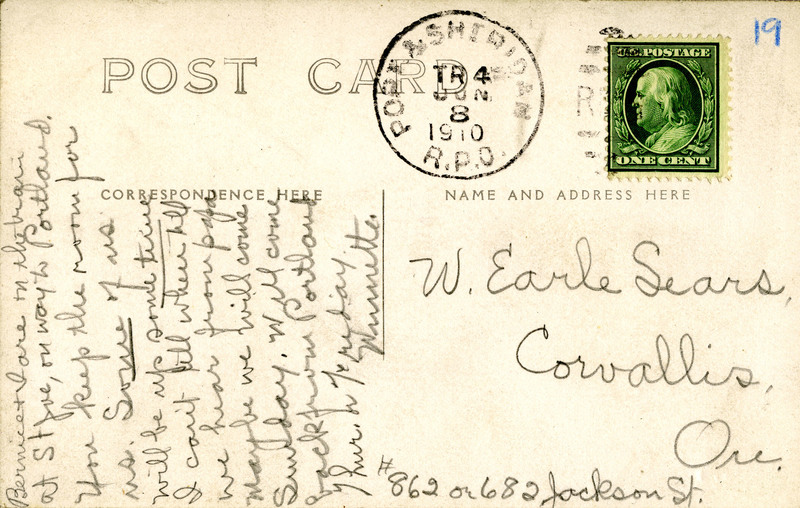 19
POST CARD
PORT & SHERIDAN
TR 4
JUN
8
1910
R.P.O.
U.S. POSTAGE
ONE CENT
CORRESPONDENCE HERE
NAME AND ADDRESS HERE
Bernice & I are on the train
at St Joe, on way to Portland.
You keep the room for
us. Some of us
will be up some time
I can't tell when till
we hear from papa
maybe we will come
Sunday. Will come
back from Portland
Thur. or Friday
W. Earle Sears,
Corvallis,
Ore.
# 862 or 682 Jackson St.